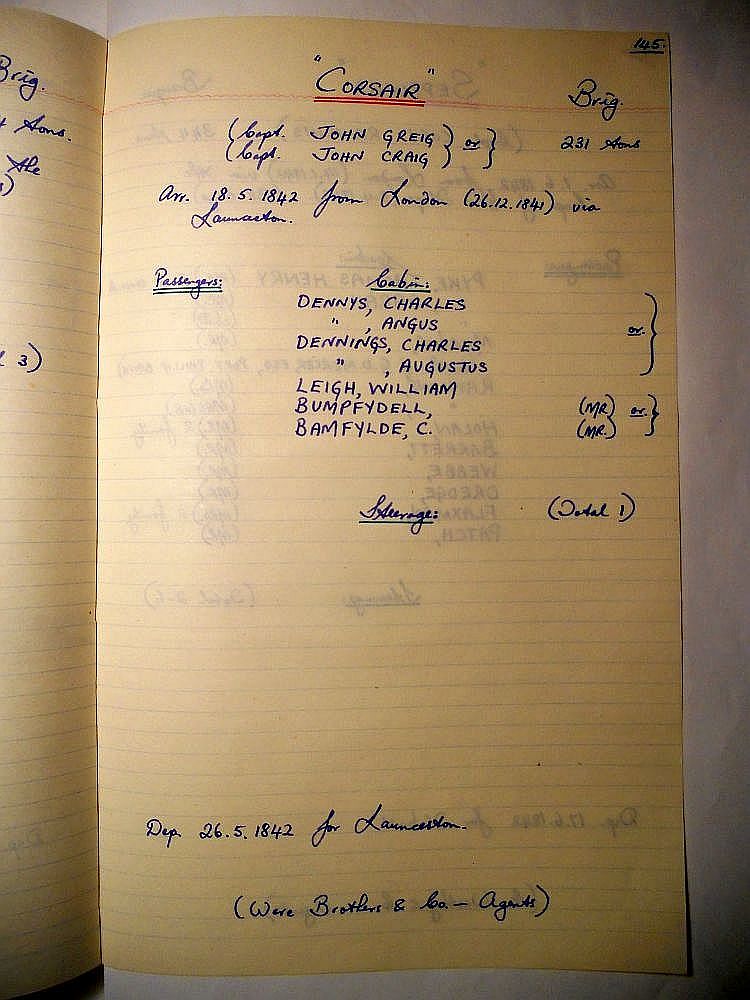 Brig.
Tons.
the
3)
145.
"CORSAIR"
Brig.
(Capt. JOHN GREIG } or }
(Capt. JOHN CRAIG
231 Tons
Arr. 18.5.1842 from London (26.12.1841) via
Launceston.
Passengers: Cabin:
DENNYS, CHARLES
" , ANGUS or }
DENNINGS, CHARLES
" , AUGUSTUS
LEIGH, WILLIAM
BUMPFYDELL, (MR) or }
BAMFYLDE, C. (MR.)
Steerage: (Total 1)
Dep. 26.5.1842 for Launceston.
(Were Brothers & Co. — Agents)